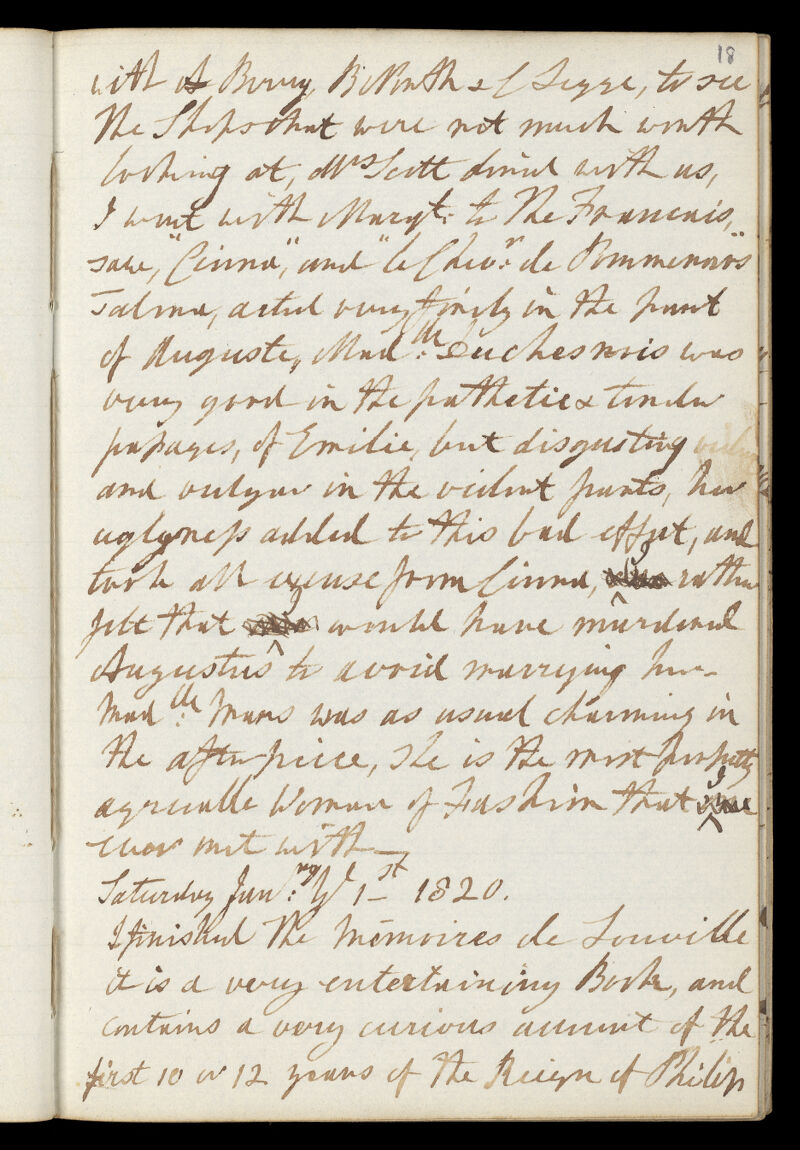 18
with Berry, & C Legge, to see
the Shops that were not much worth
looking at, Mrs Scott dined with us,
I went with Maryt: to the Francais,
saw, "Cinna", and "le Chevr: de Pommenars"
Talma, acted very finely in the part
of Auguste, Madlle: Duchesnois was
very good in the pathetic & tender
passages, of Emilie, but disgusting
and vulgar in the violent parts, her
uglyness added to this bad effect, and
took all excuse from Cinna, I rather
felt that I would have murdered
Augustus to avoid marrying her-
Madlle: Mars was as usual charming in
the after-piece, she is the most perfectly
agreeable Woman of Fashion that I
ever met with—
Saturday Janry: ye 1st 1820.
I finished the Mémoires de Louville
it is a very entertaining Book, and
contains a very curious account of the
first 10 or 12 years of the Reign of Philip